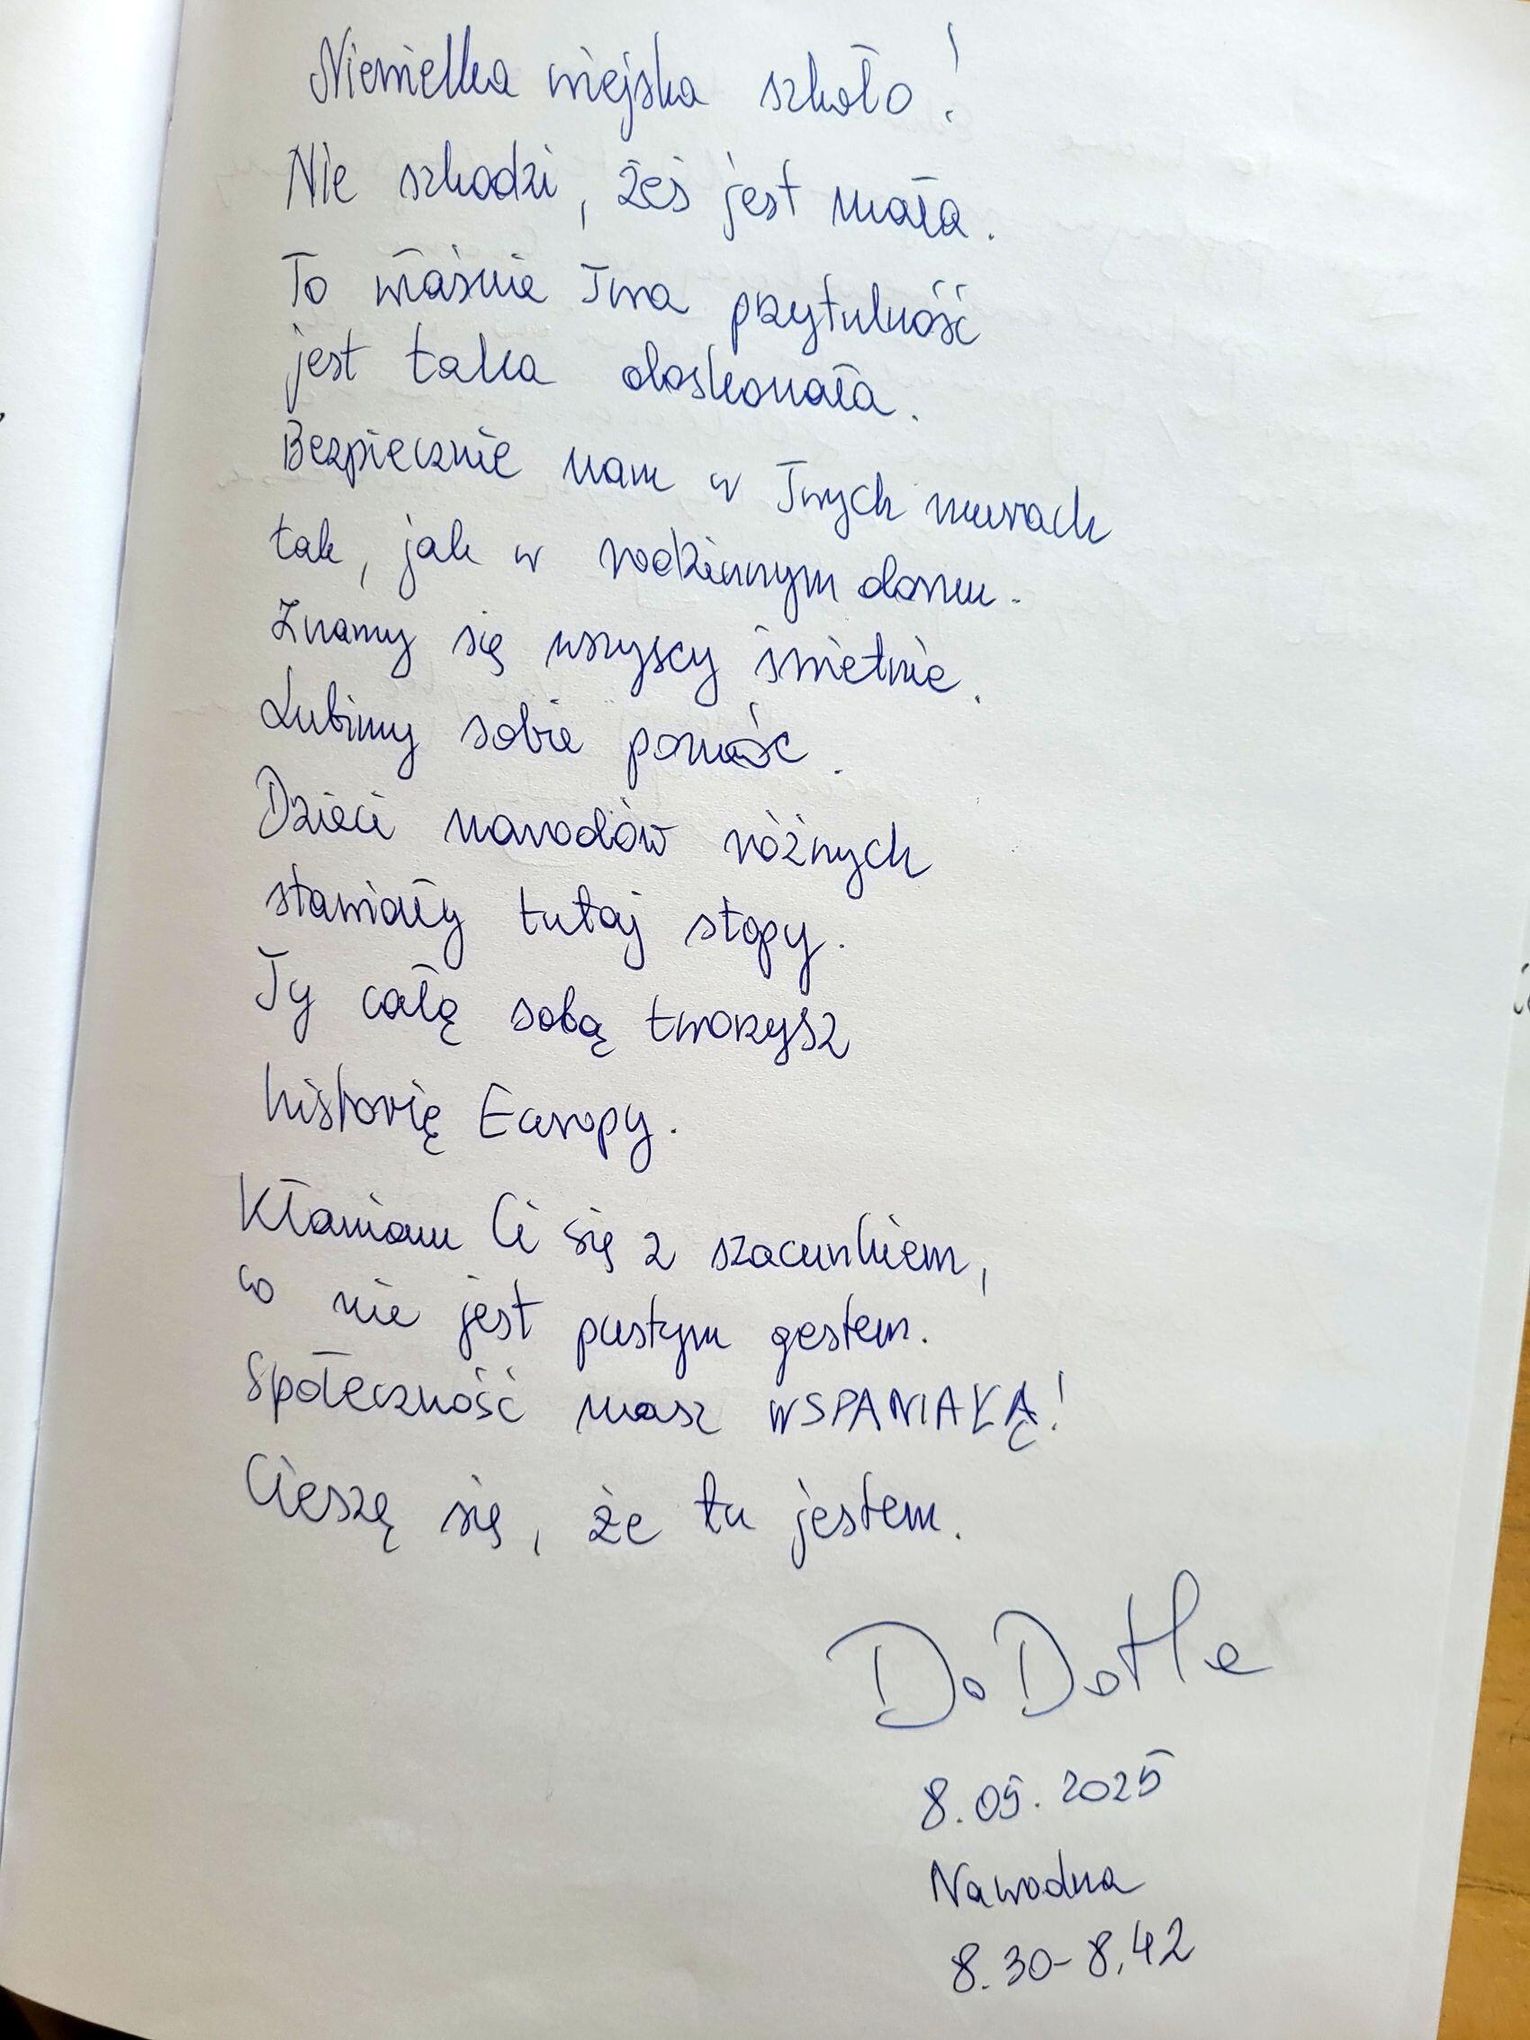 Niewielka wiejska szkoło!
Nie szkodzi, żeś jest mała.
To właśnie Twa przytulność
jest taka doskonała.
Bezpiecznie nam w Twych murach
tak, jak w rodzinnym domu.
Znamy się wszyscy świetnie.
Lubimy sobie pomóc.
Dzieci narodów różnych
stawiały tutaj stopy.
Ty całą sobą tworzysz
historię Europy.
Kłaniam Ci się z szacunkiem,
co nie jest pustym gestem.
Społeczność masz WSPANIAŁĄ!
Cieszę się, że tu jestem.
8.05.2025
Nawodna
8.30-8.42